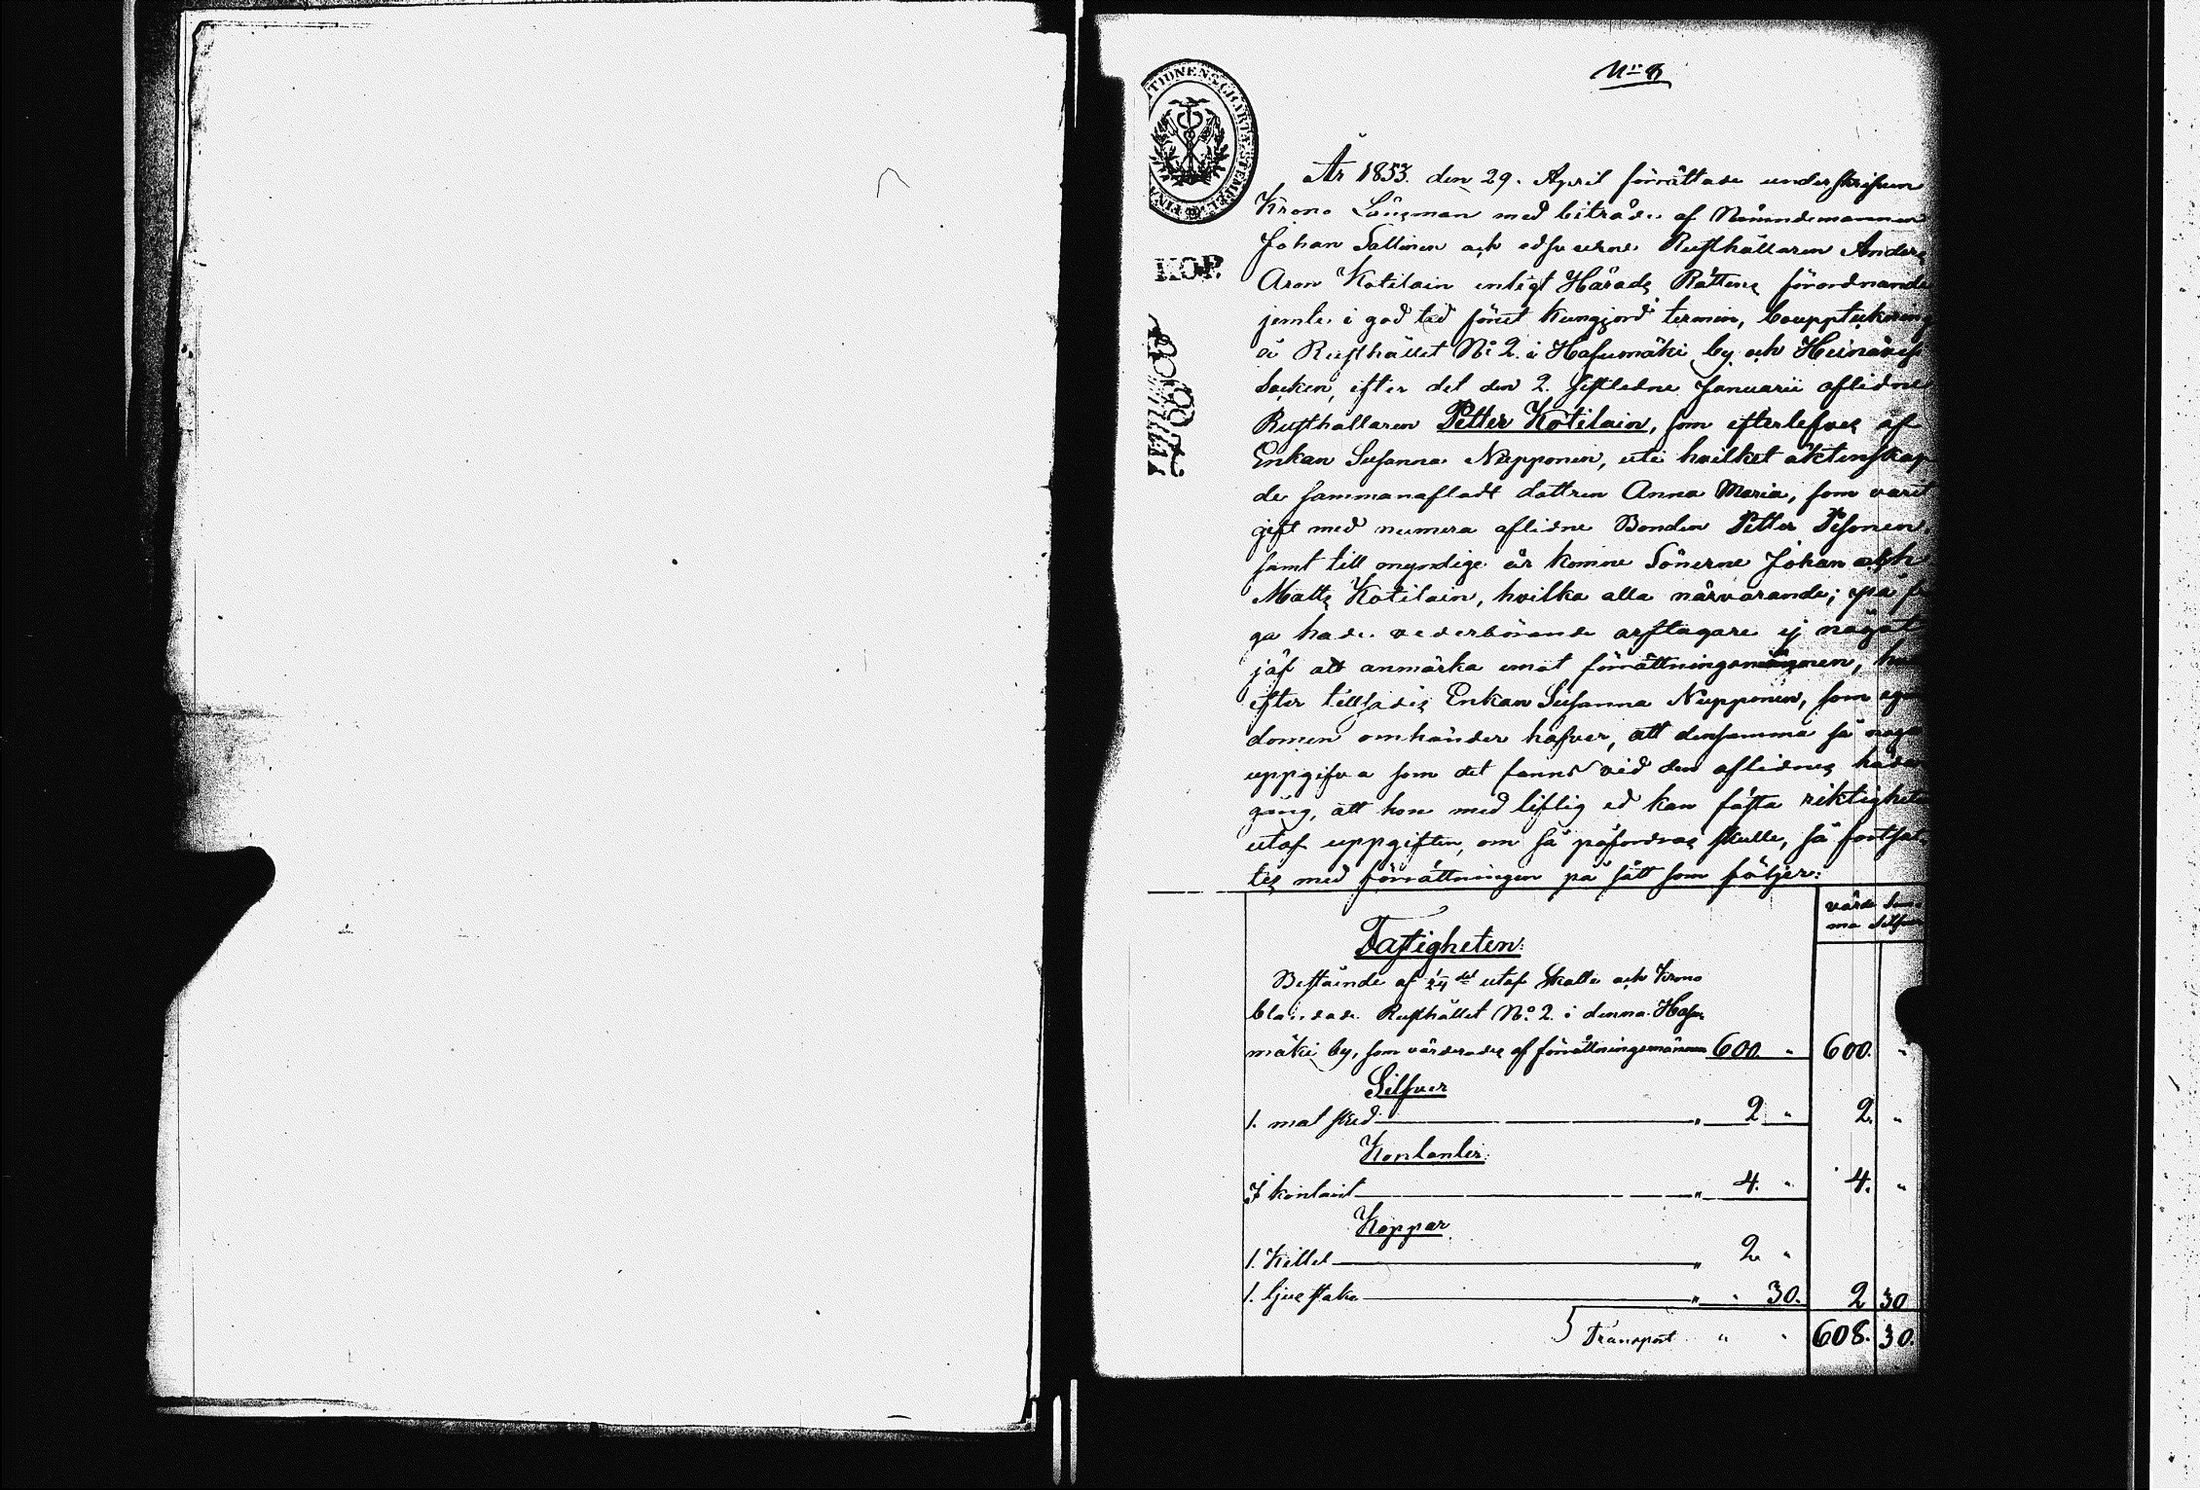 TIONENS CHARTÆ STEMPEL FIN
KOP.
År 1853. den 29. April förrättade underskrifven
Krono Länsman med biträde af Nämndemannen
Johan Sallinen och edsvurne Rusthållaren Anders
Aron Kotilain enligt Härads Rättens förordnande
jemte i god tid förut kungjord termin, bouppteckning
å Rusthållet No 2. i Hasumäki by och Heinävesi
Socken, efter det den 2. sistledne Januarii aflidne
Rusthållaren Petter Kotilain, som efterlefves af
Enkan Susanna Nupponen, uti hvilket äktenskap
de sammanafladt dottren Anna Maria, som varit
gift med numera aflidne Bonden Petter Pesonen,
samt till myndige år komne Sönerne Johan och
Matts Kotilain, hvilka alla närvarande; på frå
ga hade vederbörande arftagare ej något
jäf att anmärka emot förrättningsmännen,
efter tillsades Enkan Susanna Nupponen, som egen
domen omhänder hafver, att densamma så noga
uppgifva som det fanns vid den aflidnes hädan
gång, att hon med liflig ed kan fästa riktigheten
utaf uppgiften, om så påfordras skulle, så fortsat-
tes med förrättningen på sätt som följer:
värde Sum
ma Silfver
Fastigheten:
Bestående af 1/24 del utaf Skatte och Krono
blandade Rusthållet No 2. i denna Hasu-
mäki by, som värderades af förrättningsmännen 600 " 600. "
Silfver
1. mat sked " 2 " 2. "
Kontanter
I kontant " 4. " 4. "
Koppar
1. Kittel " 2 "
1. ljusstake " " 30. 2 30
Transport " " 608. 30.